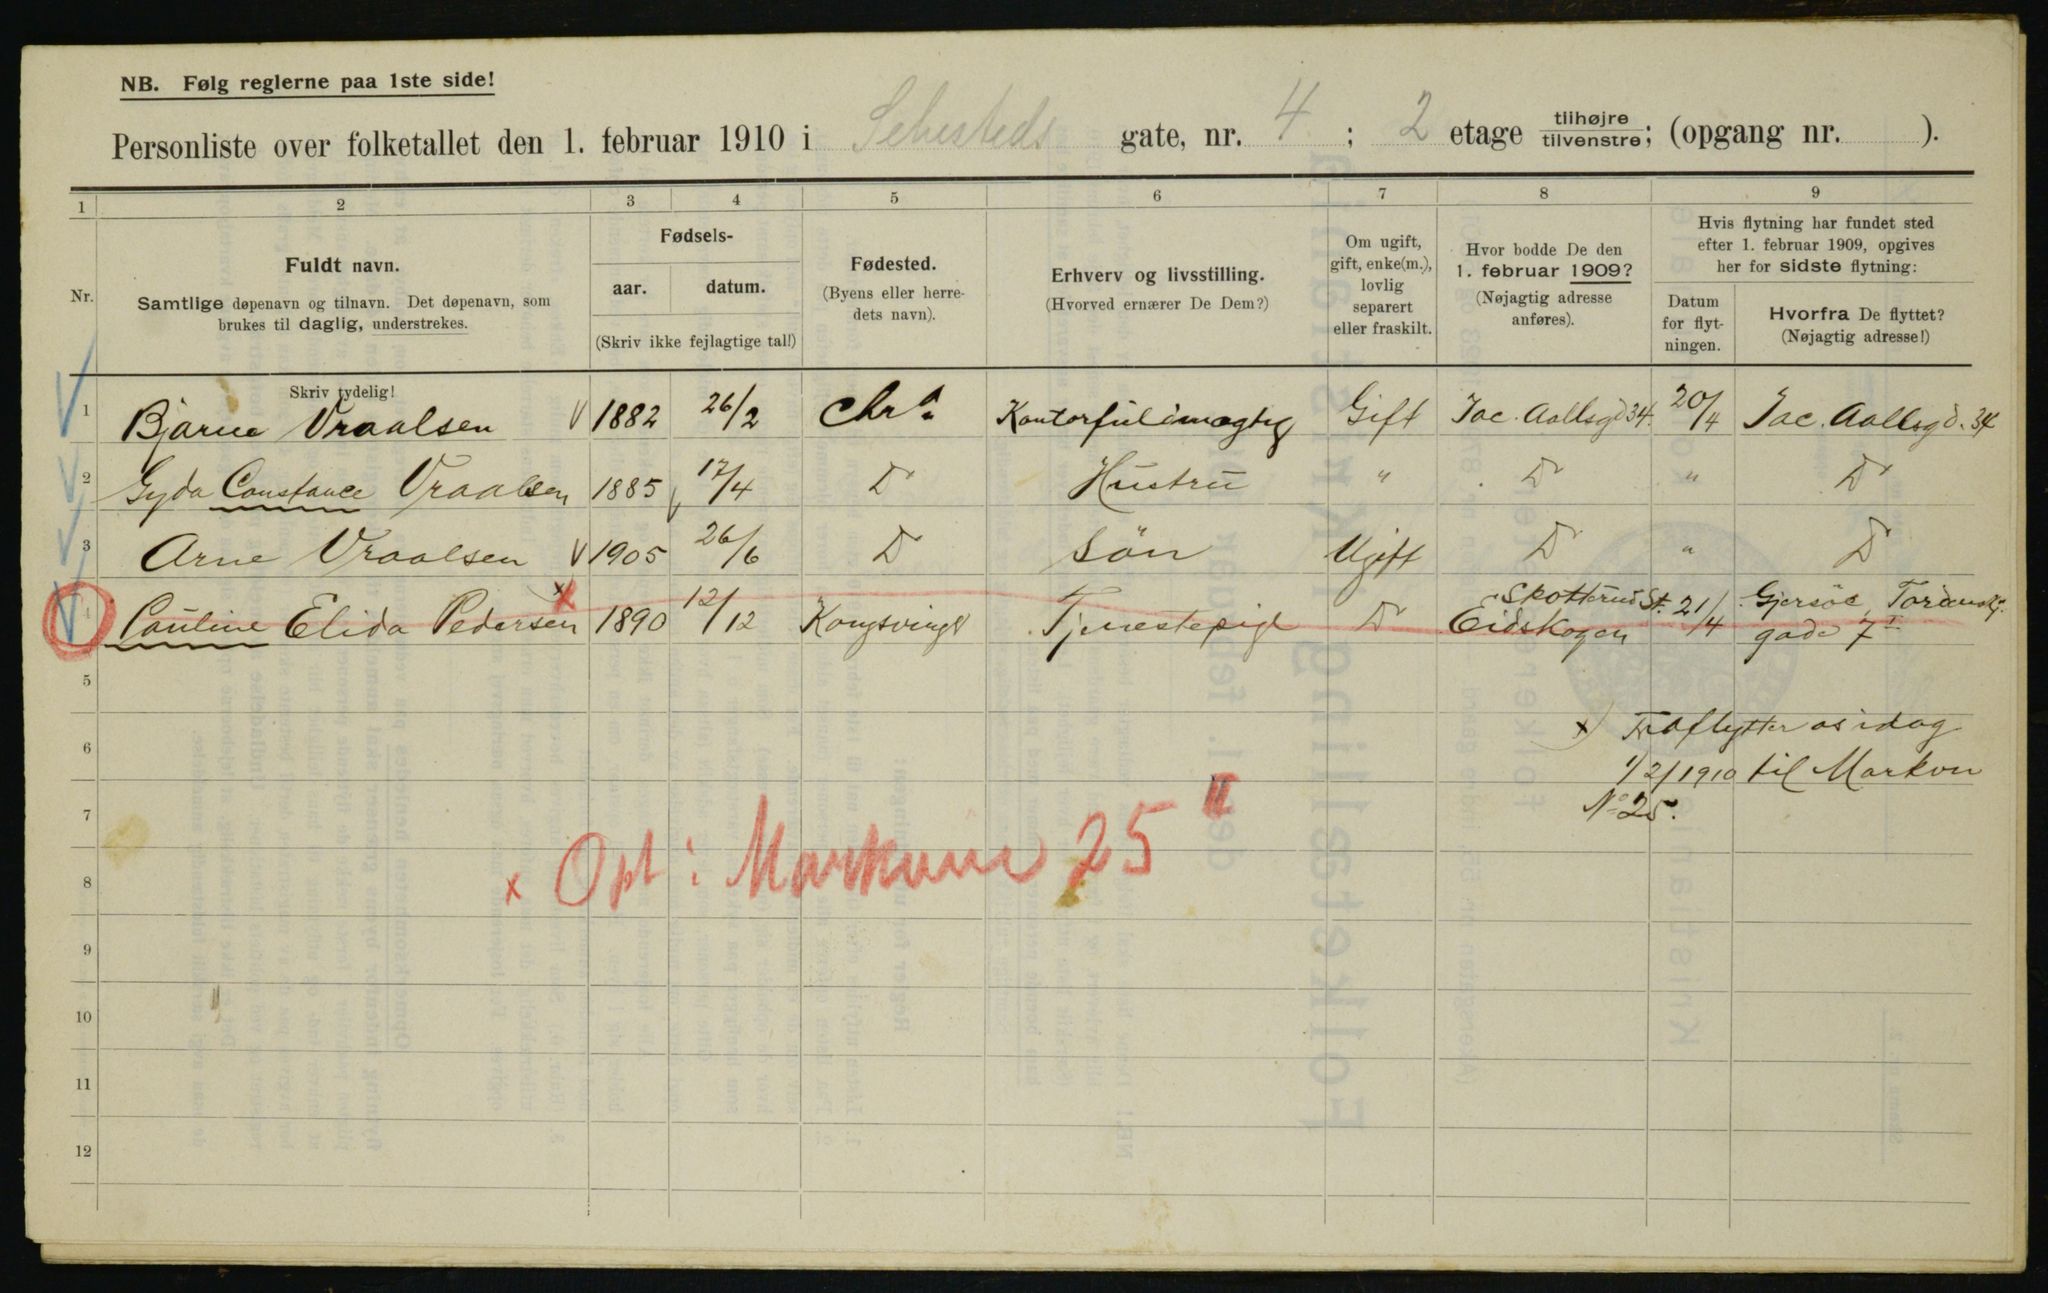 NB. Følg reglerne paa 1ste side!
Personliste over folketallet den 1. februar 1910 i Sehesteds gate, nr. 4 ; 2 etage tilhøjre/tilvenstre; (opgang nr. ).
1 2 3 4 5 6 7 8 9
Nr.
Fuldt navn.
Samtlige døpenavn og tilnavn. Det døpenavn, som
brukes til daglig, understrekes.
Skriv tydelig!
Fødsels-
aar. datum.
(Skriv ikke fejlagtige tal!)
Fødested.
(Byens eller herre-
dets navn).
Erhverv og livsstilling.
(Hvorved ernærer De Dem?)
Om ugift,
gift, enke(m.),
lovlig
separert
eller fraskilt.
Hvor bodde De den
1. februar 1909?
(Nøjagtig adresse
anføres).
Hvis flytning har fundet sted
efter 1. februar 1909, opgives
her for sidste flytning:
Datum
for flyt-
ningen.
Hvorfra De flyttet?
(Nøjagtig adresse!)
1 Bjarne Vraalsen 1882 26/2 Chr.a Kontorfuldmægtig Gift Jac. Aallsgd 34. 20/4 Jac. Aallsgd. 34
2 Gyda Constance Vraalsen 1885 17/4 D Hustru " D " D
3 Arne Vraalsen 1905 26/6 D Søn Ugift D " D
4 Pauline Elida Pedersen x 1890 12/12 Kongsvinger Tjenestepige D Skotterud St. Eidskogen 21/4 Gjersöe, Tordenskj. gade 7 I
5
6
7
8
9
10
11
12
x) Fraflytter os idag
1/2 1910 til Markvn
No 25.
x Opt i Markvn 25 II